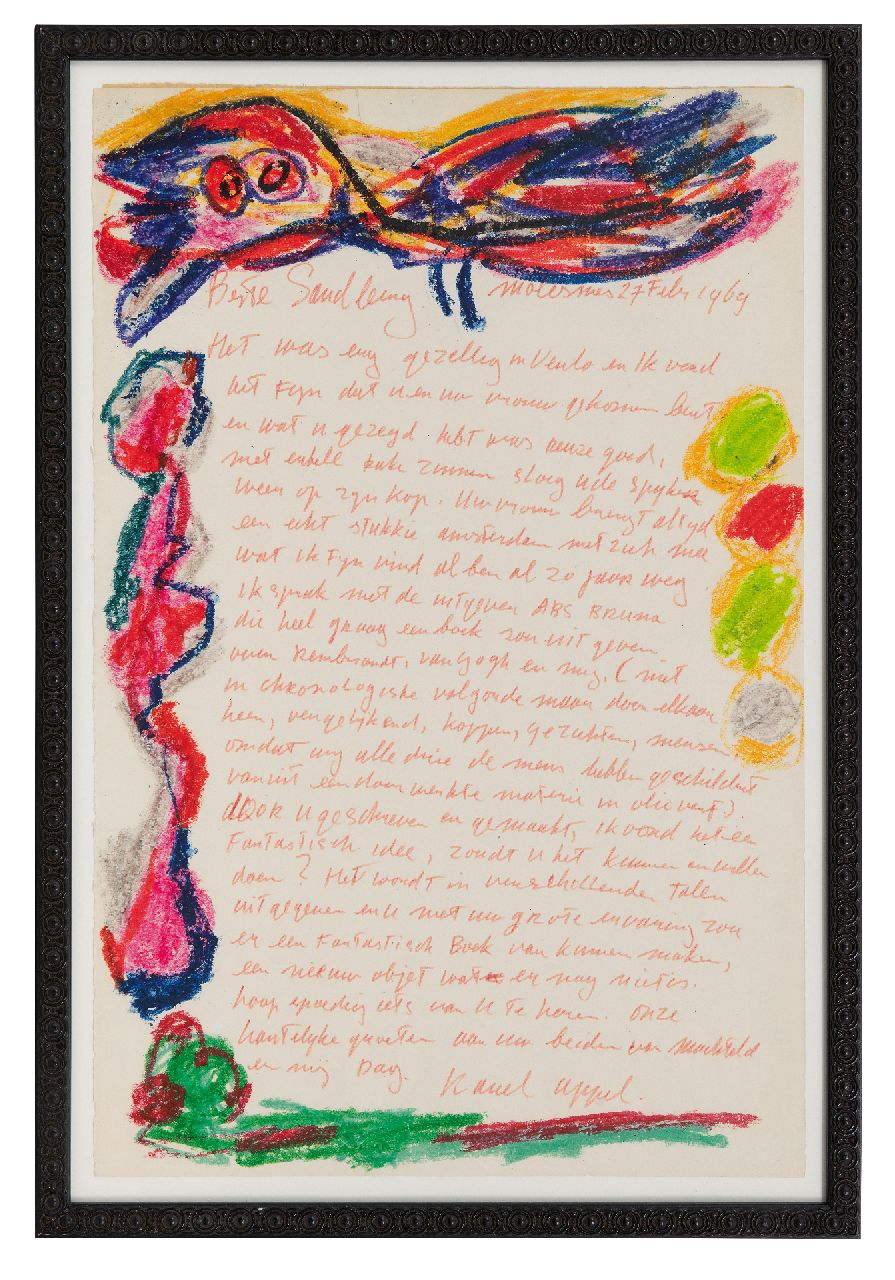 Beste Sandberg Molesmes 27 Febr 1969
Het was erg gezellig in Venlo en ik vond
het Fyn dat u en uw vrouw gekomen bent
en wat u gezegd hebt was reuze goed,
met enkele zinnen sloeg u de spykers
weer op zyn kop. Uw vrouw brengt altyd
een echt stukkie amsterdam met zich mee
wat ik Fyn vind al ben al 20 jaar weg
Ik sprak met de uitgever ABS BRUNA
die heel graag een boek zou uit geven
van Rembrandt, van Gogh en my. (niet
in chronologische volgorde maar door elkaar
heen, vergelykend, koppen, gezichten, mensen
omdat wy alle drie de mens hebben geschildert
vanuit een doorwerkte materie in olieverf)
dOOR u geschreven en gemaakt, ik vond het een
Fantastisch idee, zoudt u het kunnen en willen
doen? Het wordt in verschillenden talen
uitgegeven en u met uw grote ervaring zou
er een Fantastisch Boek van kunnen maken,
een nieuw objet wat er nog niet is.
hoop spoedig iets van u te horen. onze
hartelyke groeten aan uw beiden van Machteld
en mij Dag. Karel Appel.